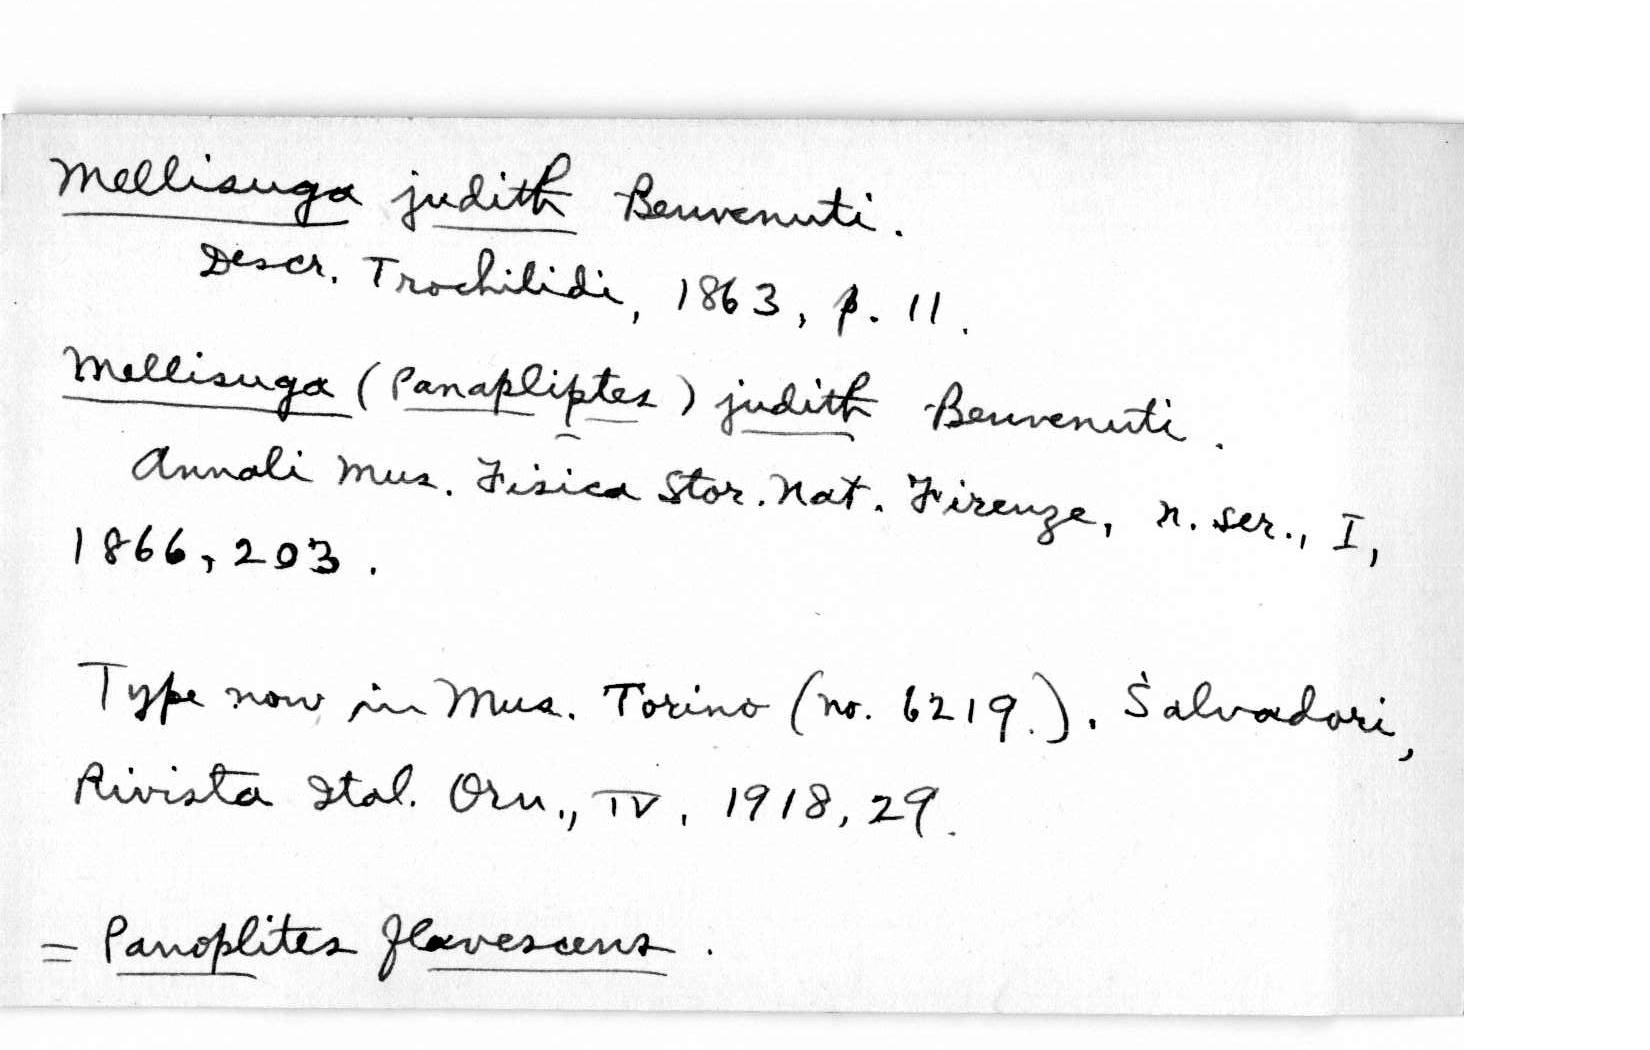 Mellisuga judith Benvenuti.
Descr. Trochilidi, 1863, p. 11.
Mellisuga (Panapliptes) judith Benvenuti.
Annali Mus. Fisica Stor. Nat. Firenze, n. ser., I,
1866, 203.
Type now in Mus. Torino (no. 6219.). Salvadori,
Rivista Ital. Orn., IV, 1918, 29.
= Panoplites flavescens.